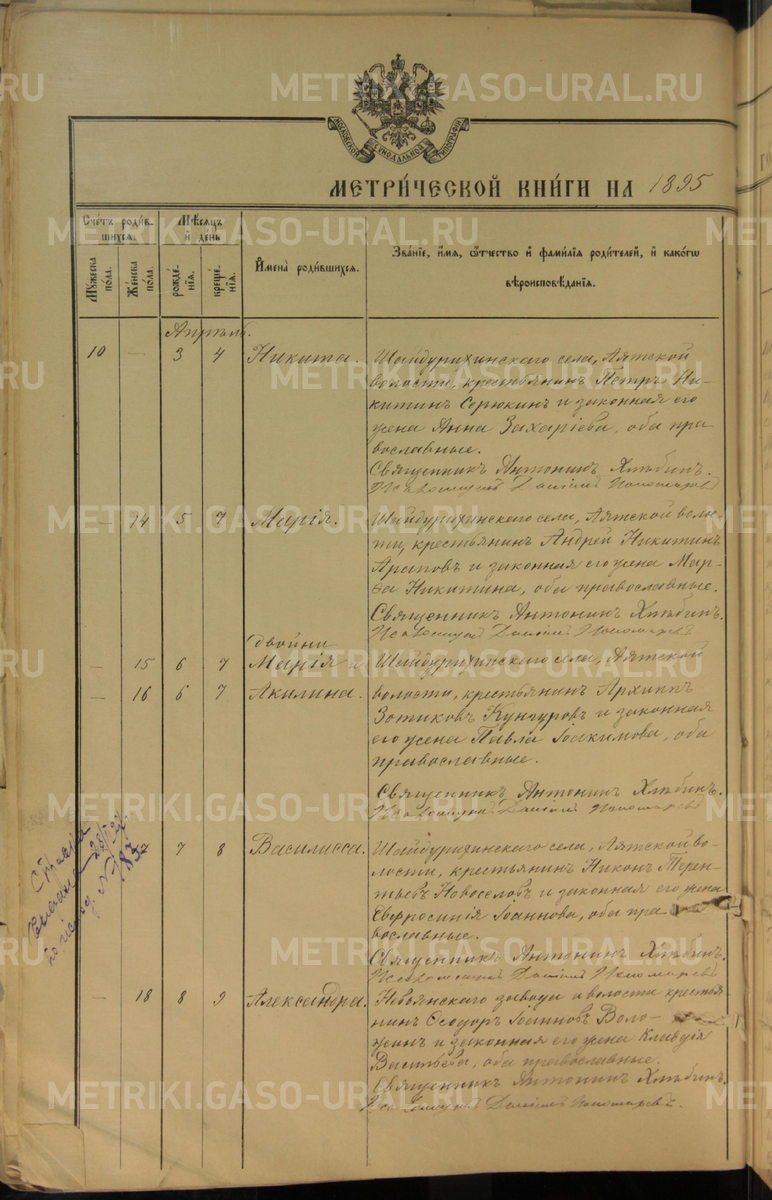 МОСКОВСКОЙ СѴНОДАЛЬНОЙ ТИПОГРАФІИ
МЕТРИ́ЧЕСКОЙ КНИ́ГИ НА 1895
Сче́тъ роди́вшихся.
Мѣ́сяцъ и҆ де́нь
Мꙋ́жеска по́ла.
Же́нска по́ла.
рожде́нїѧ.
креще́нїѧ.
И҆мена̀ роди́вшихся.
Зва́нїе, и҆́мѧ, ѻ҆́тчество и҆ фами́лїѧ роди́телей, и҆ како́гѡ
вѣроисповѣ́данїѧ.
Апрѣль.
10 — 3 4 Никита. Шайдурихинскаго села, Аятской
волости, крестьянинъ Петръ Ни-
китинъ Серюкинъ и законная его
жена Анна Захаріева, оба пра
вославные.
Священникъ Антонинъ Хлѣбинъ.
Псаломщикъ Даніилъ Пономаревъ
— 14 5 7 Марія. Шайдурихинскаго села, Аятской волос
ти, крестьянинъ Андрей Никитинъ
Араповъ и законная его жена Мар-
ѳа Никитина, оба православные.
Священникъ Антонинъ Хлѣбинъ.
Псаломщикъ Даніилъ Пономаревъ
двойни
— 15 6 7 Марія и Шайдурихинскаго села, Аятской
— 16 6 7 Акилина. волости, крестьянинъ Архиппъ
Зотиковъ Кунгуровъ и законная
его жена Павла Іоакимова, оба
православные.
Священникъ Антонинъ Хлѣбинъ.
Псаломщикъ Даніилъ Пономаревъ
7 8 Василисса. Шайдурихинскаго села, Аятской во-
лости, крестьянинъ Никонъ Терен-
тьевъ Новоселовъ и законная его жена
Евфросинія Іоаннова, оба пра
вославные.
Священникъ Антонинъ Хлѣбинъ.
Псаломщикъ Даніилъ Пономаревъ
— 18 8 9 Александра. Невьянскаго завода и волости кресть
янинъ Ѳеодоръ Іоанновъ Воло-
жинъ и законная его жена Клавдія
Васильева, оба православные.
Священникъ Антонинъ Хлѣбинъ.
Псаломщикъ Даніилъ Пономаревъ.
METRIKI.GASO-URAL.RU